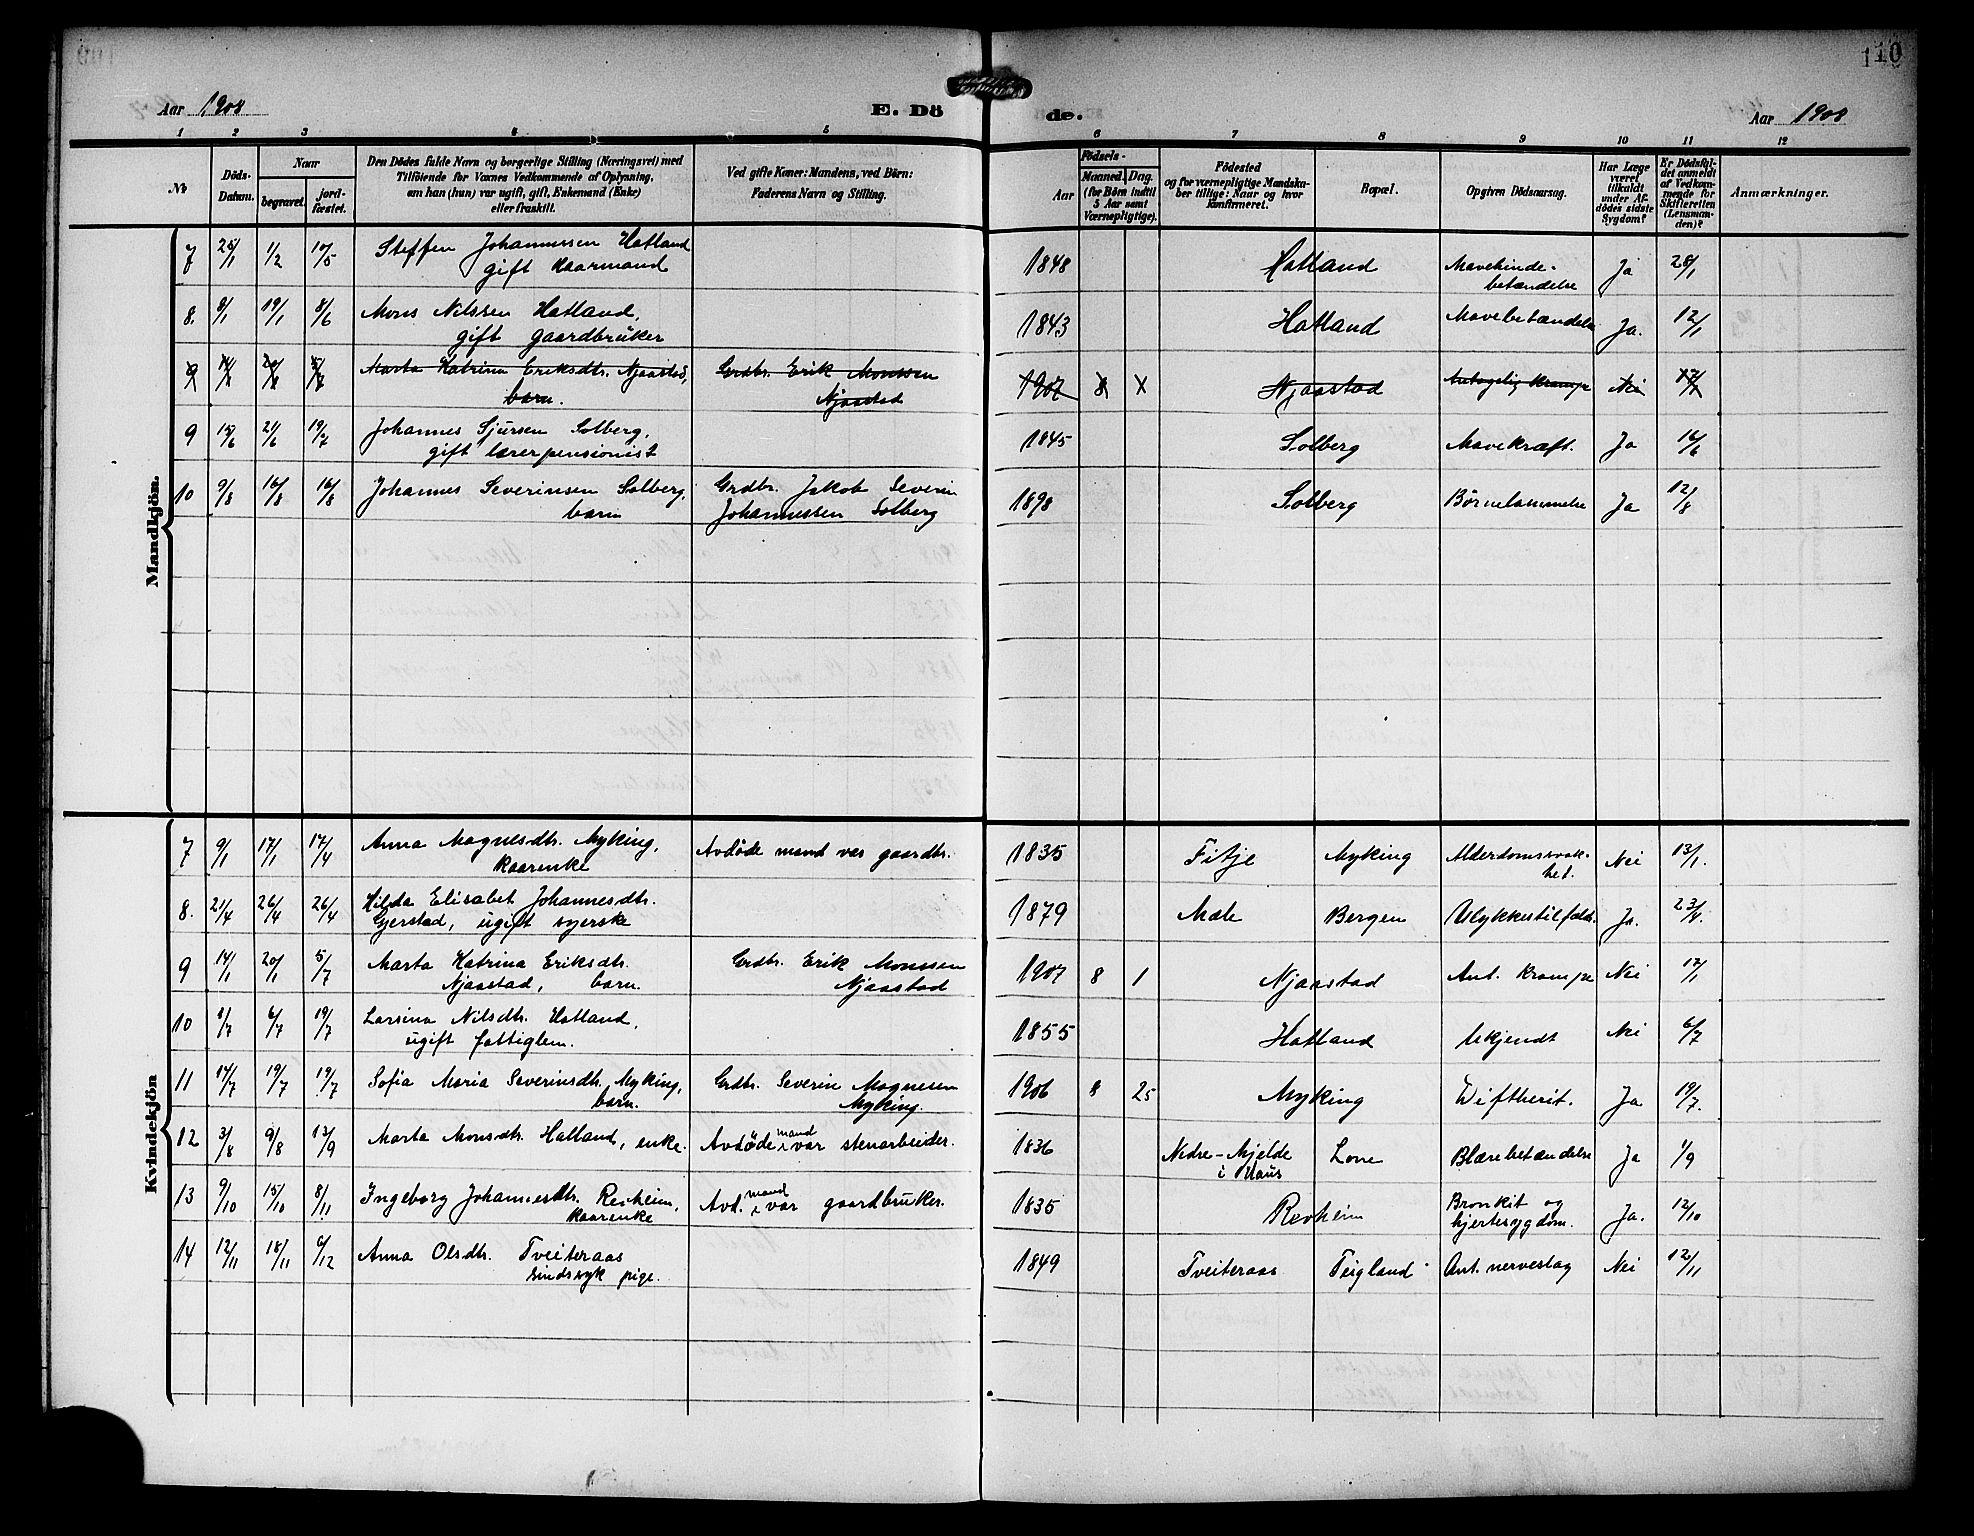 110
Aar 1908
E. Döde.
Aar 1908
1 2 3 4 5 6 7 8 9 10 11 12
No
Döds-Datum.
Naar
begravet.
jord-fæstet.
Den Dödes fulde Navn og borgerlige Stilling (Næringsvei) med
Tilföiende for Voxnes Vedkommende af Oplysning,
om han (hun) var ugift, gift, Enkemand (Enke)
eller fraskilt.
Ved gifte Koner: Mandens, ved Börn:
Faderens Navn og Stilling.
Födsels-
Aar
Maaned. Dag.
(for Börn indtil
5 Aar samt
Værnepligtige).
Födested
og for værnepligtige Mandska-
ber tillige: Naar og hvor
konfirmeret.
Bopæl.
Opgiven Dödsaarsag.
Har Læge
været
tilkaldt
under Af-
dödes sidste
Sygdom?
Er Dödsfal-
det anmeldt
af Vedkom-
mende for
Skifteretten
(Lensman-
den)?
Anmærkninger.
Mandkjön.
7 25/1 1/2 10/5 Steffen Johannessen Hatland 1848 Hatland Mavehinde- Ja 28/1
gift kaarmand betændelse
8. 8/1 19/1 8/6 Mons Nilssen Hatland, 1843 Hatland Mavebetændelse Ja. 12/1
gift gaardbruker
9 Marta Katrina Eriksdtr. Njaastad, Grdbr. Erik Monssen 1907 8 1 Njaastad Antagelig krampe Nei
barn. Njaastad
9 15/6 21/6 19/7 Johannes Sjursen Solberg, 1845 Solberg Mavekræft. Ja 16/6
gift lærerpensionist
10 9/8 16/8 16/8 Johannes Severinsen Solberg, Grdbr. Jakob Severin 1898 Solberg Børnelammelse Ja 12/8
barn Johannessen Solberg
Kvindekjön
7 9/1 17/1 17/4 Anna Magnesdtr. Myking, Avdöde mand var gaardbr. 1835 Fitje Myking Alderdomssvak- Nei 13/1.
kaarenke het.
8. 21/4 26/4 26/4 Hilda Elisabet Johannesdtr. 1879 Mæle Bergen Ulykkestilfælde Ja. 23/4.
Gjerstad, ugift syerske
9 14/1 20/1 5/7 Marta Katrina Eriksdtr. Grdbr. Erik Monssen 1907 8 1 Njaastad Ant. krampe Nei 17/1
Njaastad, barn. Njaastad
10 1/7 6/7 19/7 Larsina Nilsdtr. Hatland, 1855 Hatland Ukjendt Nei 6/7
ugift fattiglem.
11 14/7 19/7 19/7 Sofia Maria Severinsdtr. Myking, Grdbr. Severin Magnesen 1906 8 25 Myking Diftherit. Ja 19/7.
barn. Myking.
12 3/8 9/8 13/9 Marta Monsdtr. Hatland, enke. Avdöde mand var stenarbeider. 1836 Nedre-Mjelde Lone Blærebetændelse Ja 1/9
i Haus
13 9/10 15/10 8/11 Ingeborg Johannesdtr. Revheim, Avd. mand var gaardbruker. 1835 Revheim Bronkit og Ja. 12/10
kaarenke hjertesygdom.
14 12/11 18/11 6/12 Anna Olsdtr. Tveiteraas 1849 Tveiteraas Teigland Ant. nerveslag Nei 12/11
sindssyk pige.